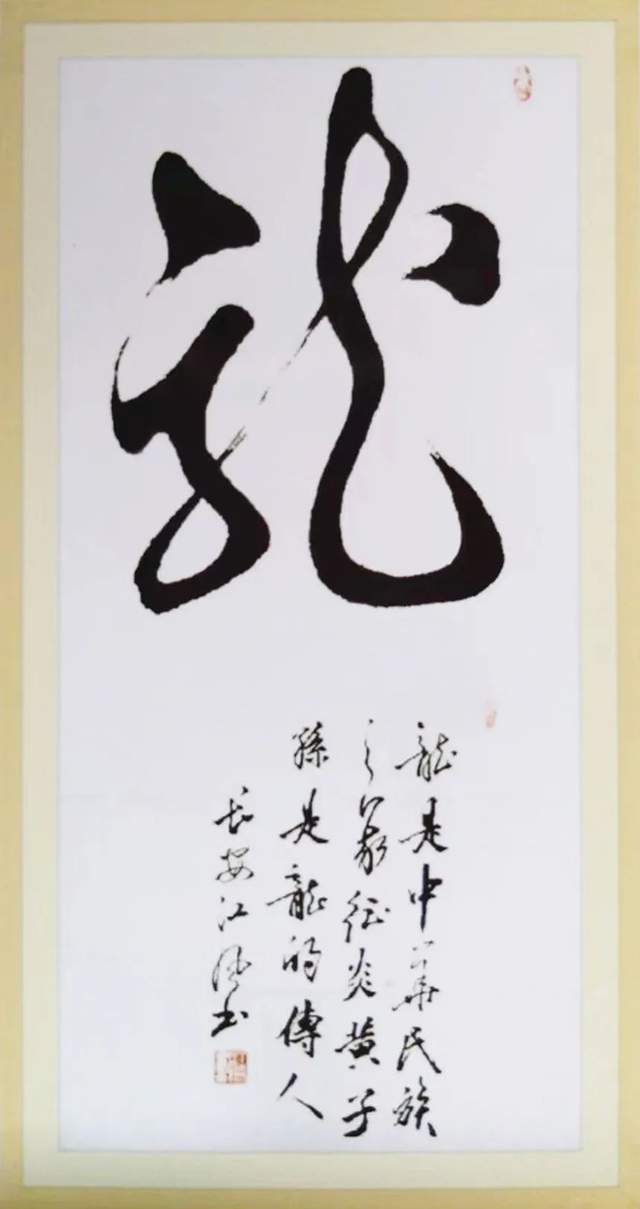 龍
龍是中華民族
之象徵炎黃子
孫是龍的傳人
長安江濤書